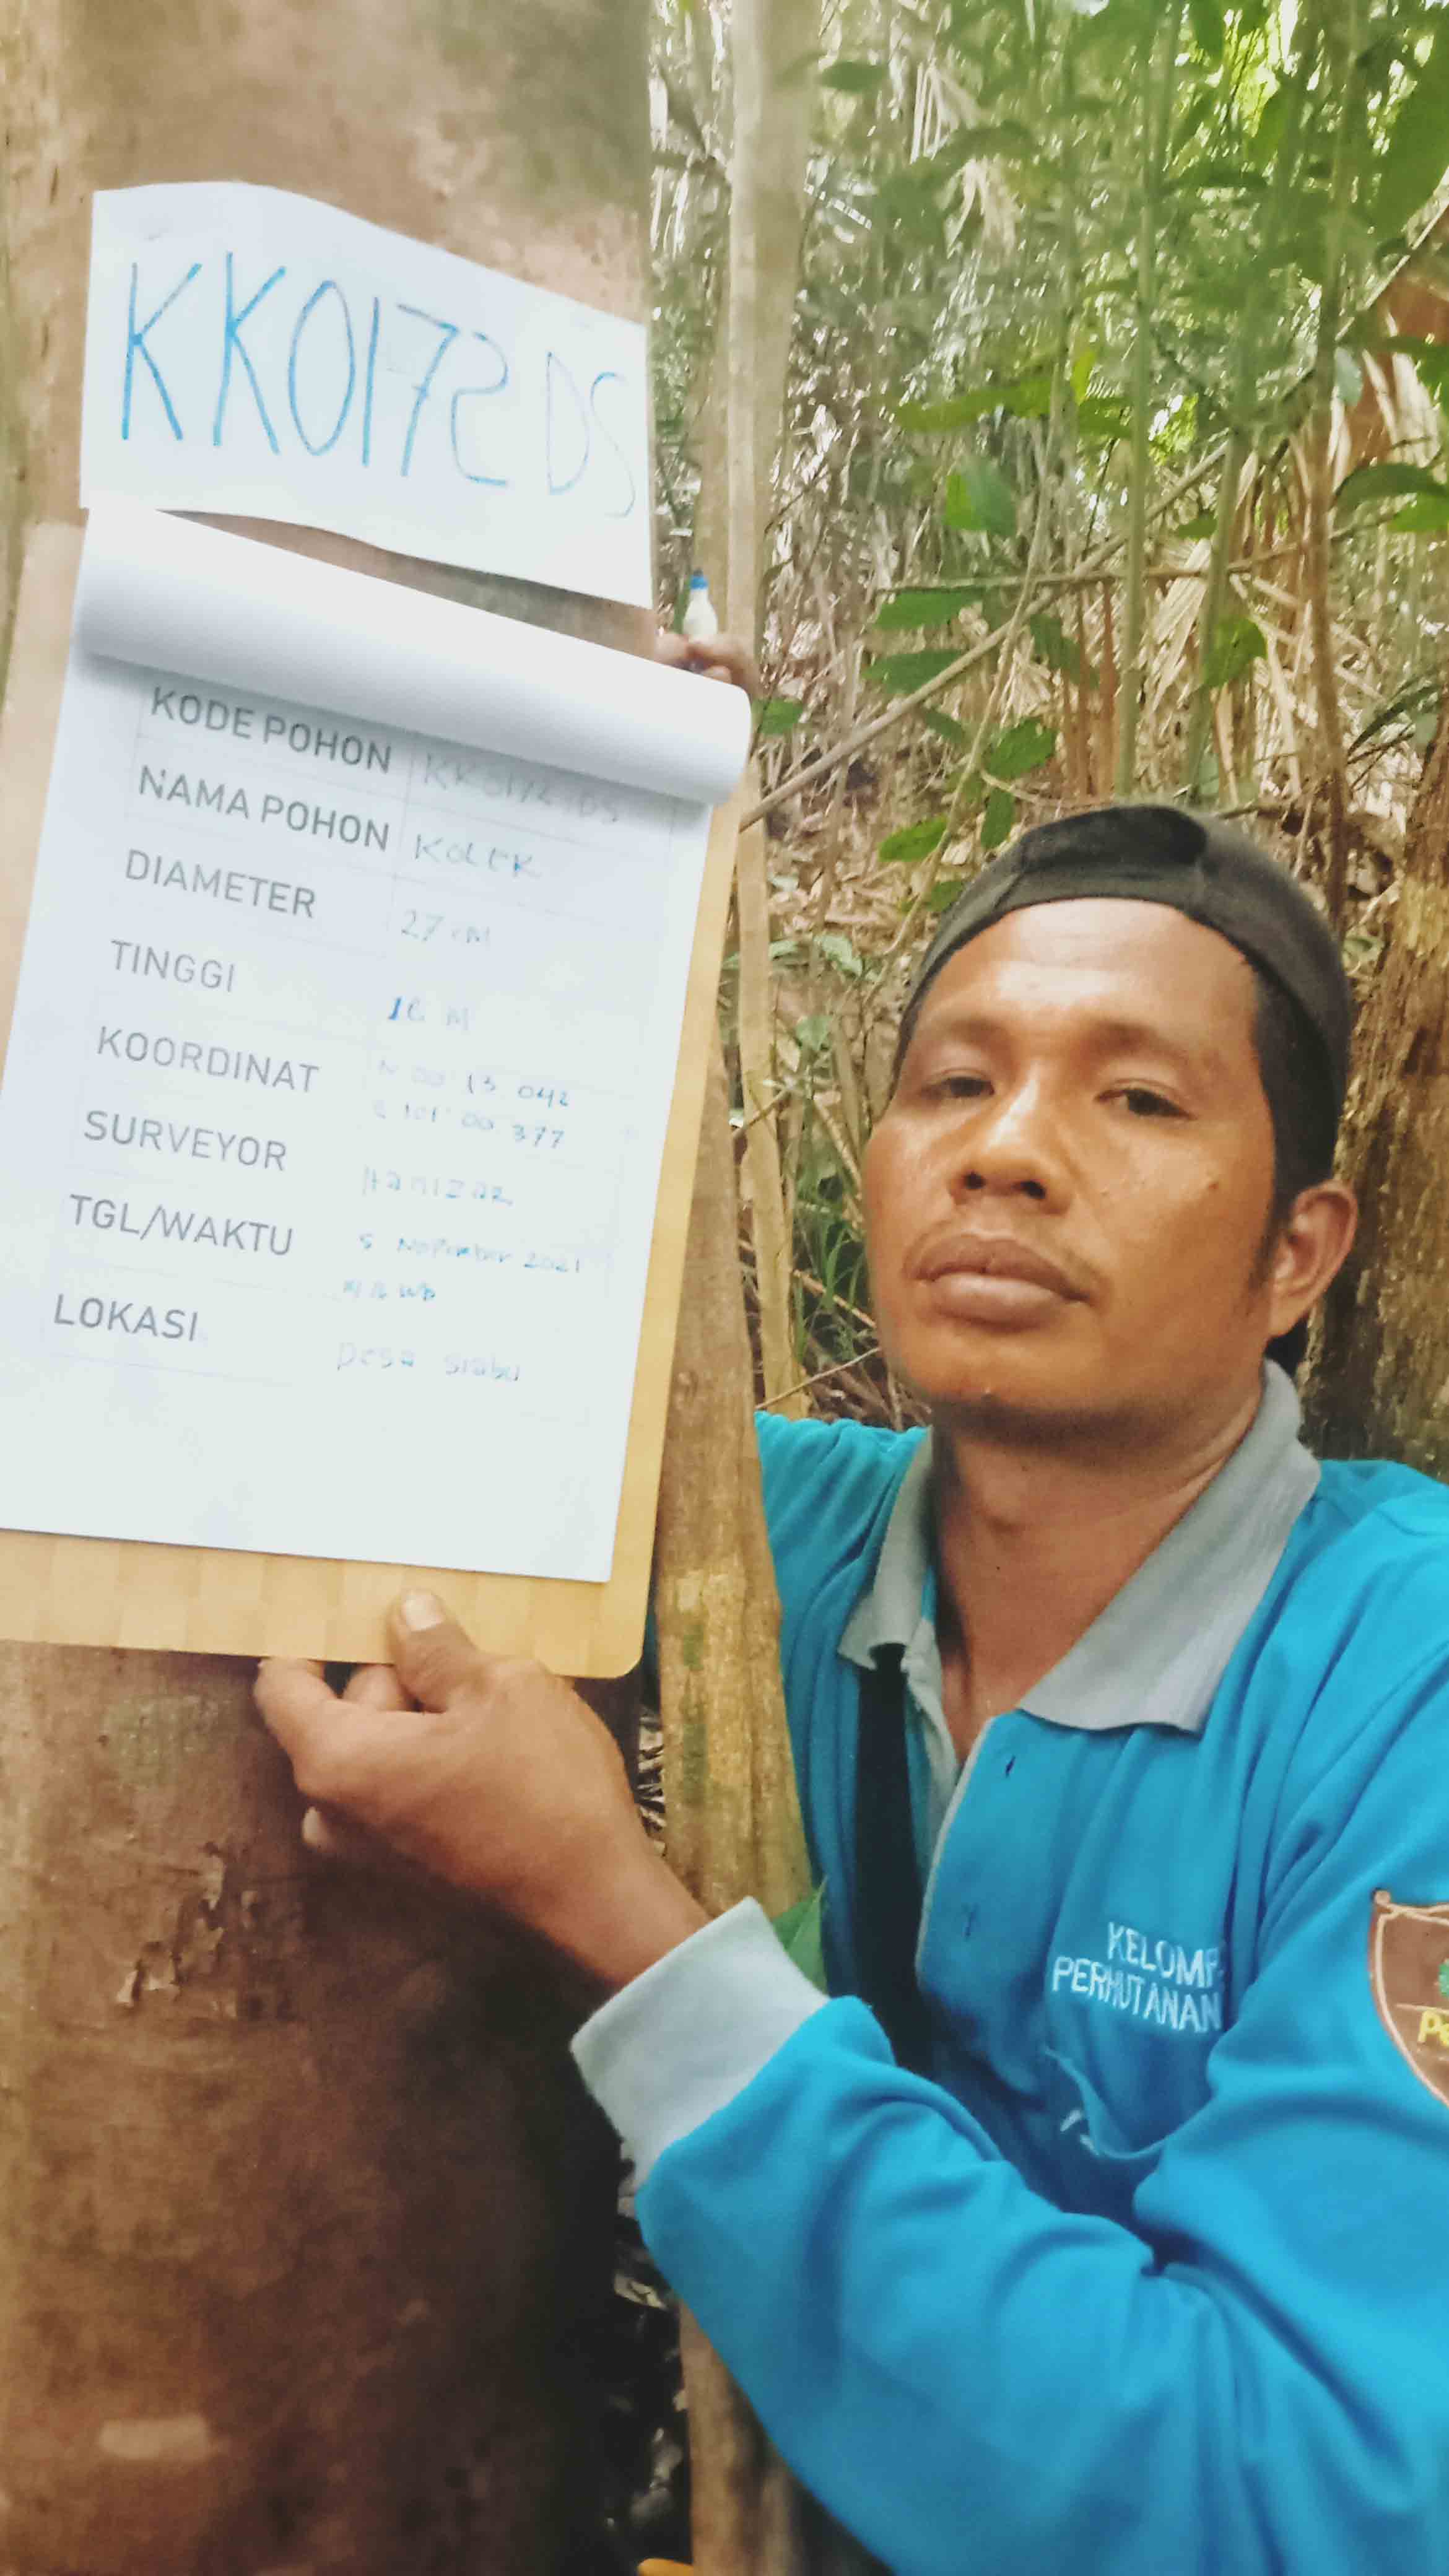 KK0172 DS
KODE POHON KK0172 DS
NAMA POHON KOLEK
DIAMETER 27 cM
TINGGI 16 M
KOORDINAT N 00 13 042
E 101 00 377
SURVEYOR HamIzaR
TGL/WAKTU 5 November 2021
LOKASI Desa siabu
KELOMP
PERHUTANAN